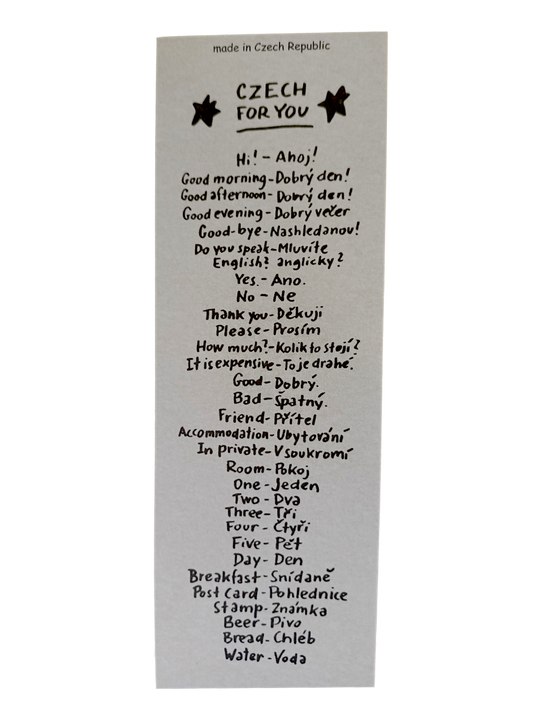 made in Czech Republic
CZECH
FOR YOU
Hi! - Ahoj!
Good morning - Dobrý den!
Good afternoon - Dobrý den!
Good evening - Dobrý večer
Good-bye - Nashledanou!
Do you speak - Mluvíte
English? anglicky?
Yes. - Ano.
No - Ne
Thank you - Děkuji
Please - Prosím
How much? - Kolik to stojí?
It is expensive - To je drahé.
Good - Dobrý.
Bad - Špatný.
Friend - Přítel
Accommodation - Ubytování
In private - V soukromí
Room - Pokoj
One - Jeden
Two - Dva
Three - Tři
Four - Čtyři
Five - Pět
Day - Den
Breakfast - Snídaně
Post Card - Pohlednice
Stamp - Známka
Beer - Pivo
Bread - Chléb
Water - Voda